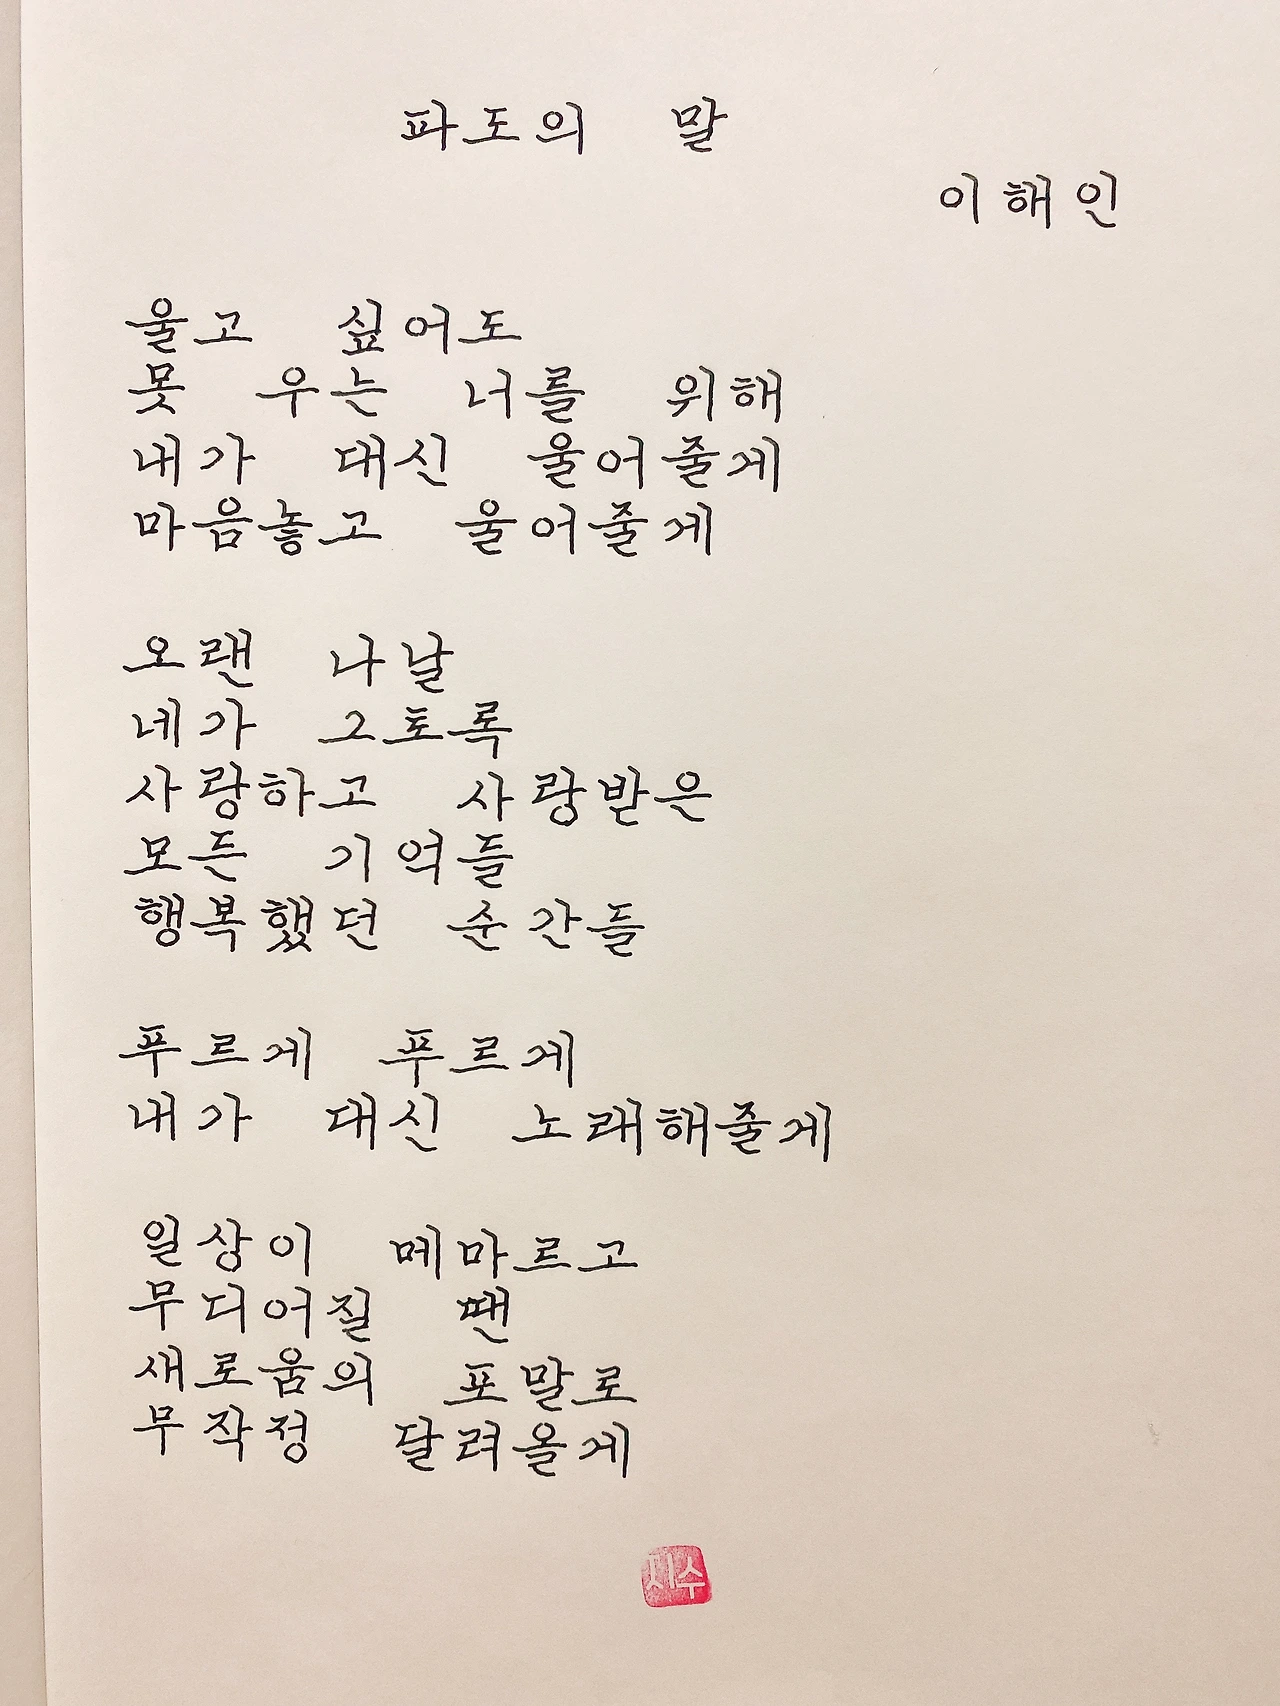 파도의 말
이해인
울고 싶어도
못 우는 너를 위해
내가 대신 울어줄게
마음놓고 울어줄게
오랜 나날
네가 그토록
사랑하고 사랑받은
모든 기억들
행복했던 순간들
푸르게 푸르게
내가 대신 노래해줄게
일상이 메마르고
무디어질 땐
새로움의 포말로
무작정 달려올게